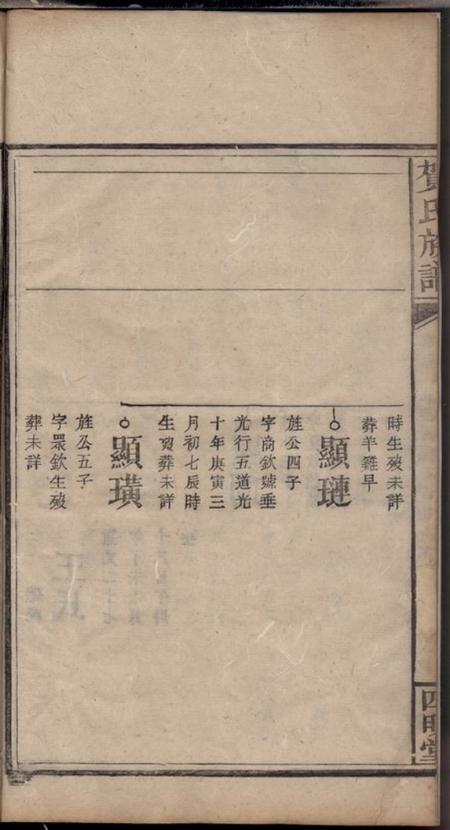 賀氏族譜
四明堂
時生歿未詳
葬羊雞早
顯璉
旌公四子
字商欽號垂
光行五道光
十年庚寅三
月初七辰時
生歿葬未詳
顯璜
旌公五子
字眾欽生歿
葬未詳